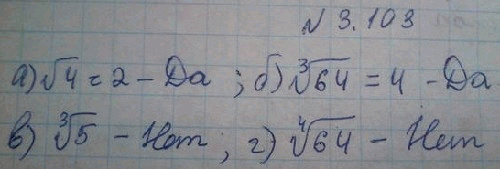 N 3.103
а) √4 = 2 - Да ; б) ∛64 = 4 - Да
в) ∛5 - Нет ; г) ∜64 - Нет